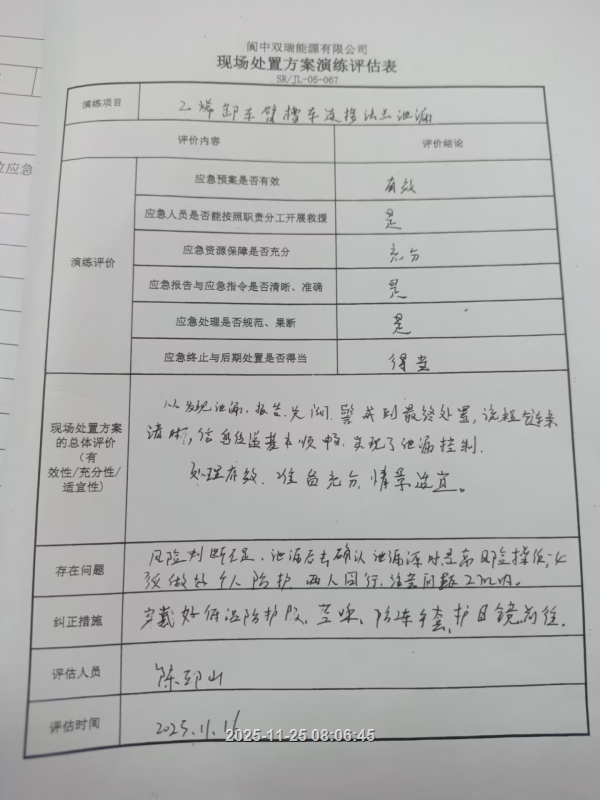 阆中双瑞能源有限公司
现场处置方案演练评估表
SR/JL-05-067
演练项目 乙烯卸车臂槽车连接法兰泄漏
评价内容 评价结论
演练评价
应急预案是否有效 有效
应急人员是否能按照职责分工开展救援 是
应急资源保障是否充分 充分
应急报告与应急指令是否清晰、准确 是
应急处理是否规范、果断 是
应急终止与后期处置是否得当 得当
现场处置方案
的总体评价
(有
效性/充分性/
适宜性)
从发现泄漏、报告、关阀、警戒到最终处置,流程链条
清晰,信息传递基本顺畅,实现了泄漏控制.
处理有效、准备充分,情景适宜。
存在问题
风险判断不足、泄漏后去确认泄漏源时是高风险操作,必
须做好个人防护,两人同行,
纠正措施 穿戴好低温防护服、空呼、防冻手套、护目镜前往.
评估人员
评估时间 2025.11.16
2025-11-25 08:06:45
立应急